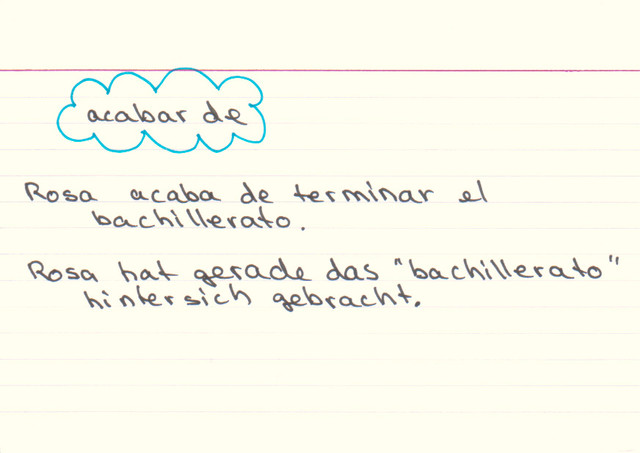 acabar de
Rosa acaba de terminar el
bachillerato.
Rosa hat gerade das "bachillerato"
hinter sich gebracht.